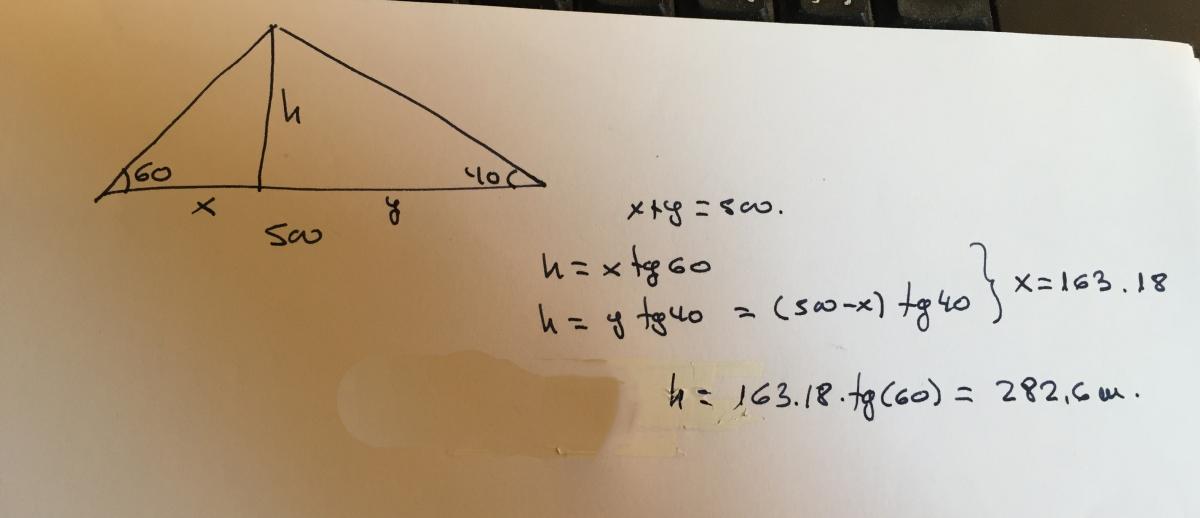 h
60
40
x
y
500
x+y = 500.
h = x tg 60
h = y tg 40 = (500-x) tg 40 } x=163.18
h = 163.18.tg(60) = 282,6 m.